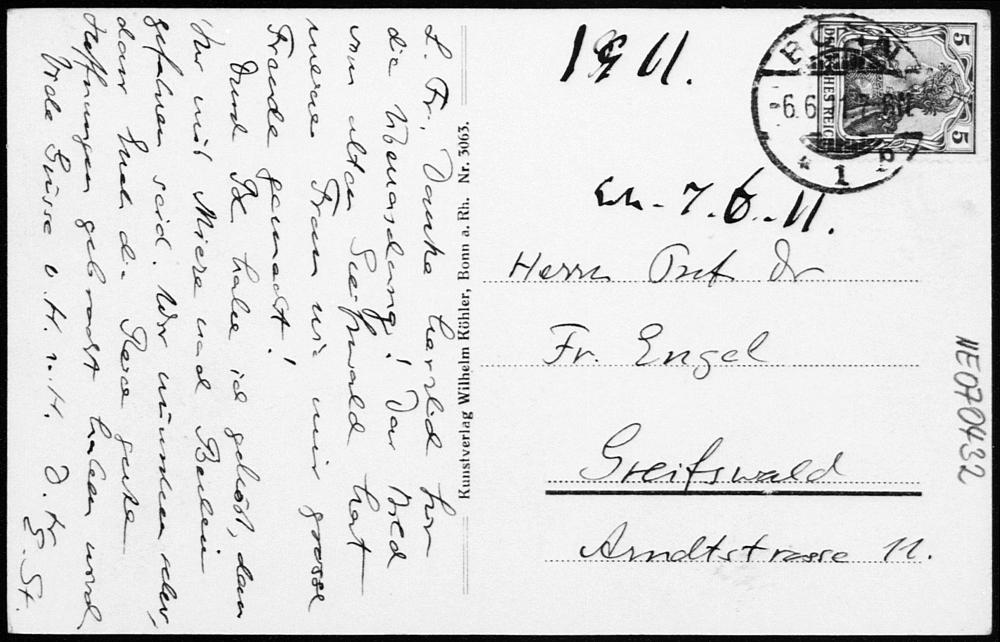 L. Fr. Danke herzlich für
die Übersendung! Das Bild
vom alten Greifswald hat
meiner Frau wie mir grosse
Freude gemacht!
Durch habe ich gehört, dass
Ihr mit Mieze nach Berlin
gefahren seid. Wir wünschen sehr,
dass Euch die Reise gute
Hoffnungen gebracht haben wird
Viele Grüsse v. H. z. H. D. tr.
G. St.
Kunstverlag Wilhelm Köhler, Bonn a. Rh. Nr. 3063.
11.
7. 6. 11.
BONN
6.6.
* 1
DEUTSCHES REICH
5
5
Herrn Prof Dr
Fr. Engel
Greifswald
Arndtstrasse 11.
NE070432